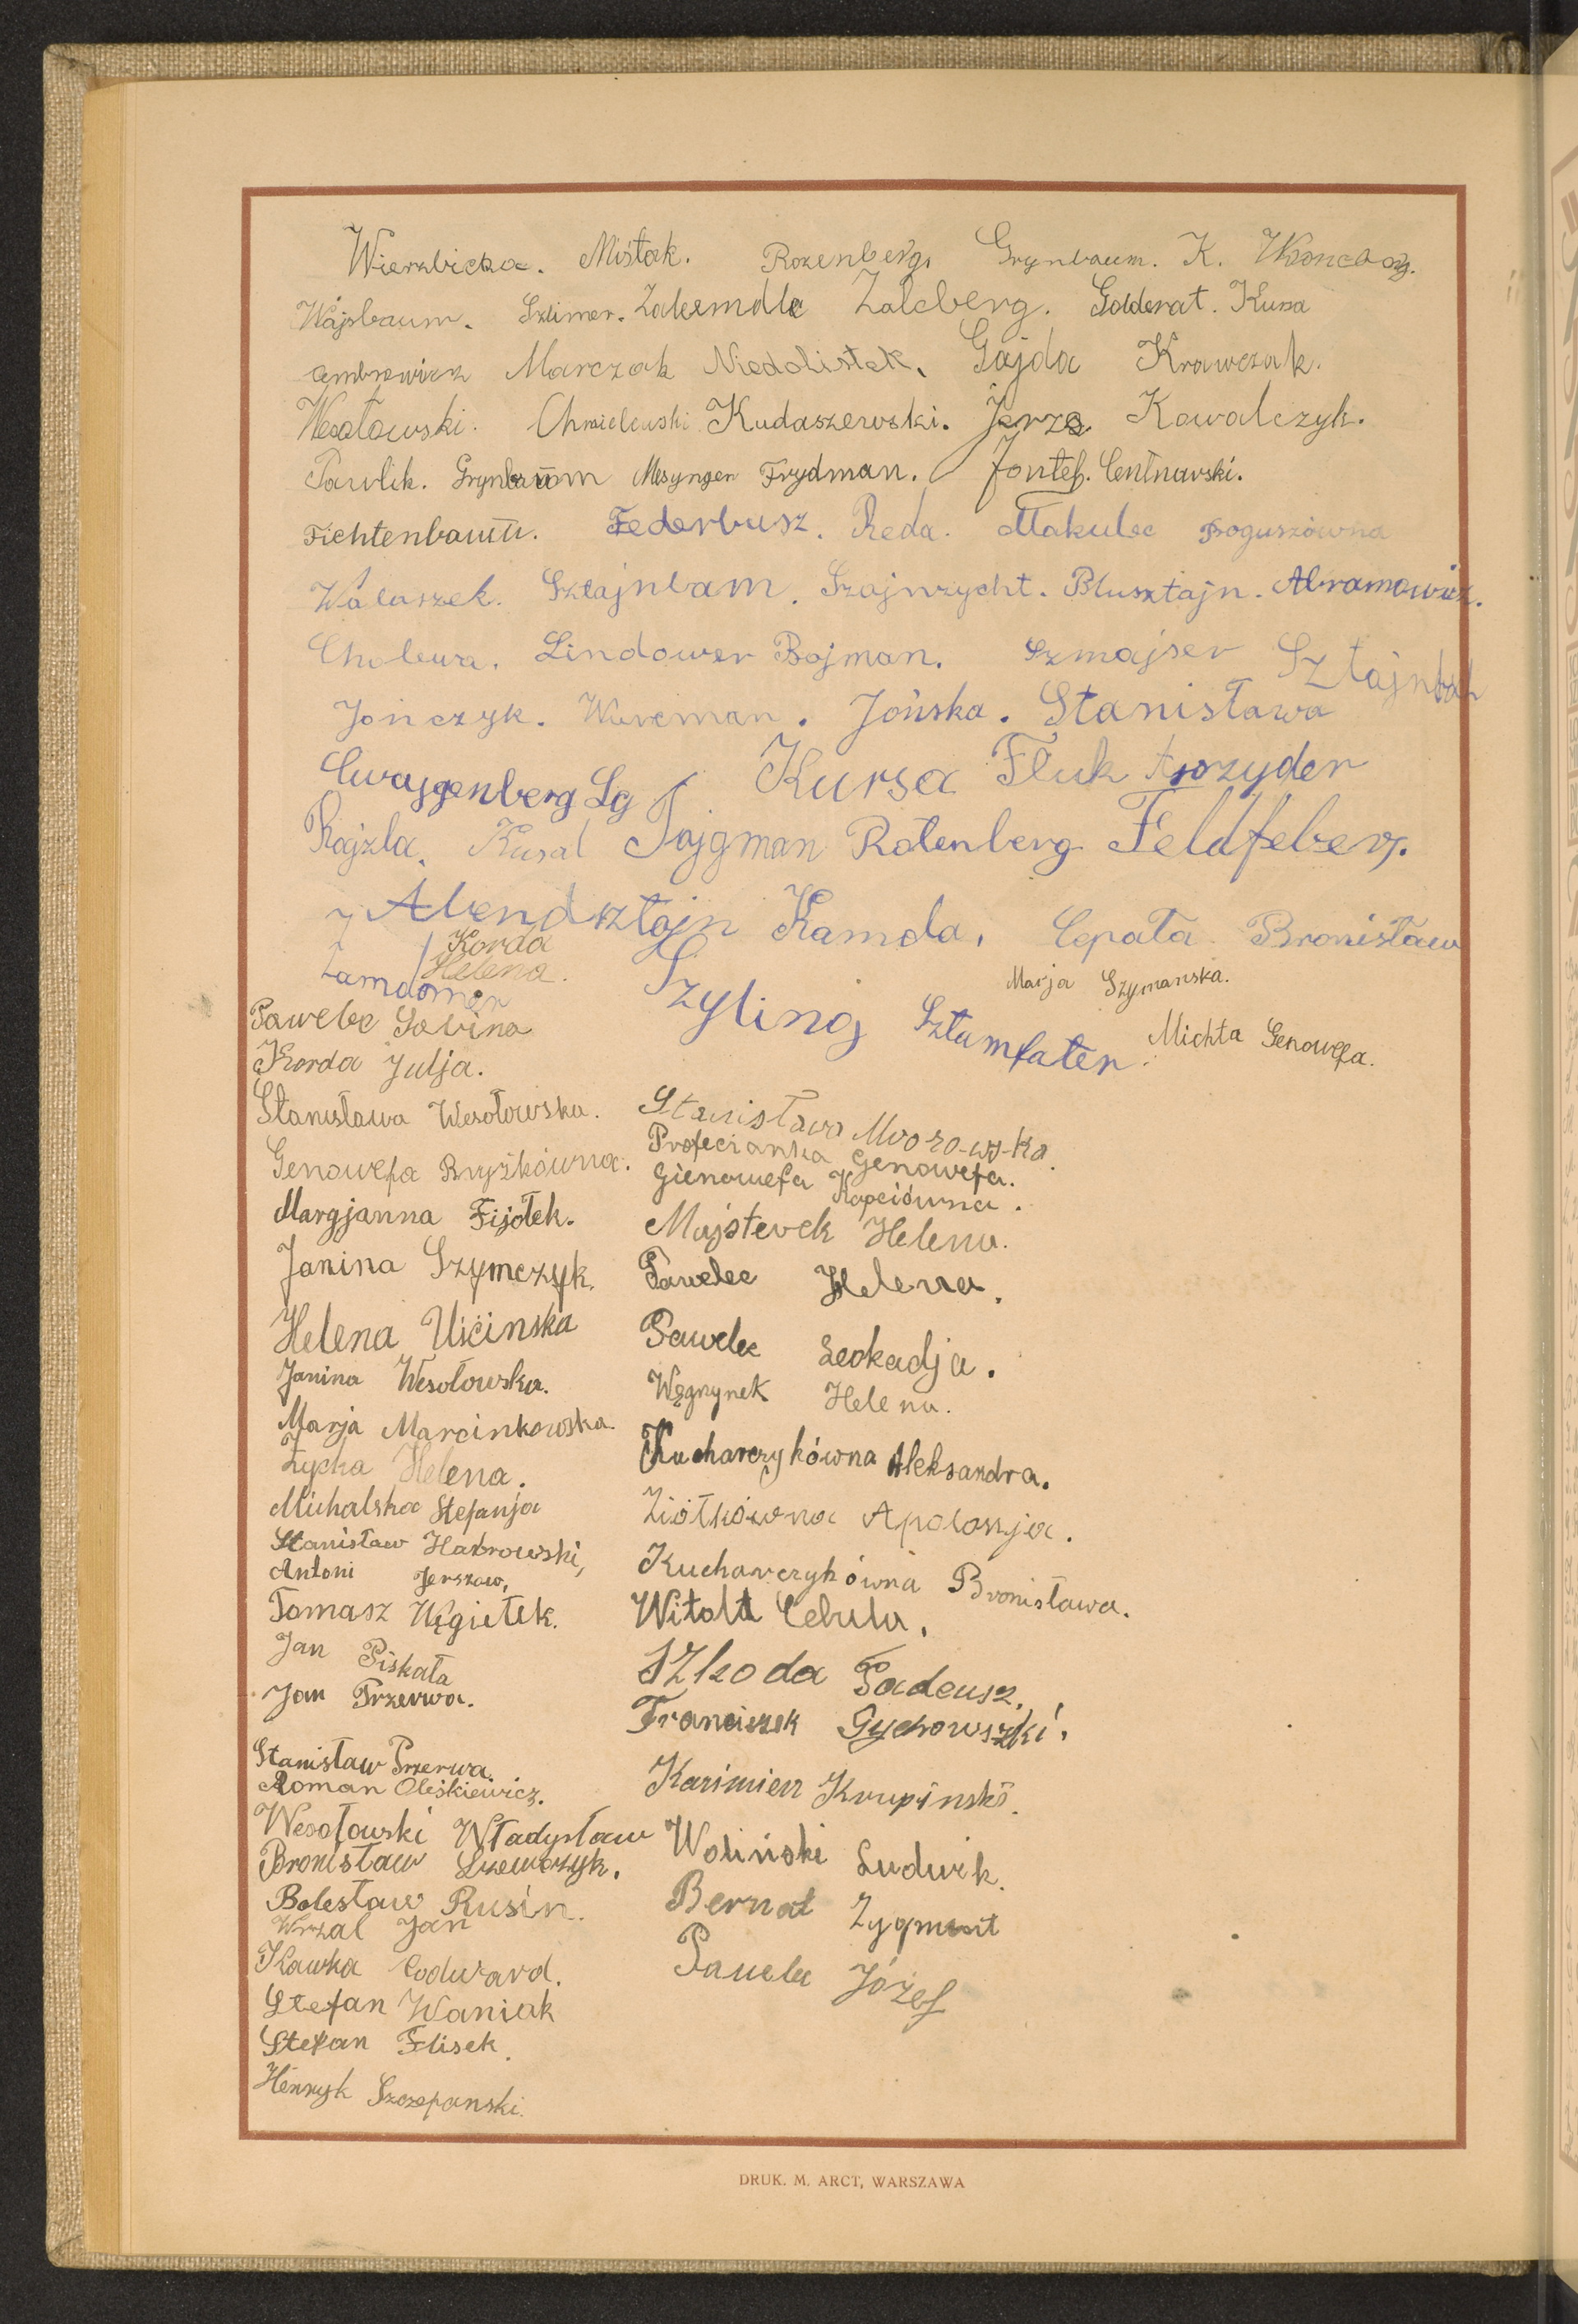 Wierzbicka. Mistak. Rozenberg. Grynbaum. K.
Wajsbaum. Szlimer. Zalcberg. Golderat. Kusa
Marczak Niedolistek. Gajda Krawczak.
Wesołowski. Chmielewski Kudaszewski. Kowalczyk.
Pawlik. Grynbaum Mesyngen Frydman. Jontef. Centnarski.
Fichtenbaum. Federbusz. Reda. Makulec Boguszówna
Walaszek. Sztajnbam. Szajnzycht. Blusztajn. Abramowicz.
Cholewa. Lindower Bojman. Szmajser
Jończyk. Jońska. Stanisława
Cwajgenberg Lg Kursa Fluk
Rajzla. Kusal Tajgman Rotenberg Feldfeber.
Abendsztajn Kamda, Cepata Bronisław
Korda
Helena.
Marja Szymanska.
Pawelec Sabina
Szyling Sztamfater.
Michta Genowefa.
Korda Julja.
Stanisława Wesołowska.
Stanisława
Genowefa
Genowefa.
Gienowefa Kapciówna.
Margjanna Fijołek.
Majsterek Helena.
Janina Szymczyk.
Pawelec Helena.
Helena Uścinska
Pawelec Leokadja.
Janina Wesołowska.
Węgrynek Helena.
Marja Marcinkowska.
Kucharczykówna Aleksandra.
Życka Helena.
Michalska Stefanja
Ziółkówna Apolonja.
Stanisław Habrowski,
Antoni Jerszow,
Kucharczykówna Bronisława.
Tomasz Węgiełek.
Witold Cebula.
Jan Piskała
Szkoda Tadeusz.
Jan Przerwa.
Franciszek
Stanisław Przerwa.
Roman Oleśkiewicz.
Kazimierz Krupiński.
Wesołowski Władysław
Woliński Ludwik.
Bronisław Szewczyk.
Bolesław Rusin.
Bernat Zygmunt
Wrzal Jan
Kawka Edward.
Pawelec Józef
Stefan Waniak
Stefan Flisek.
Henryk Szczepanski.
DRUK. M. ARCT, WARSZAWA